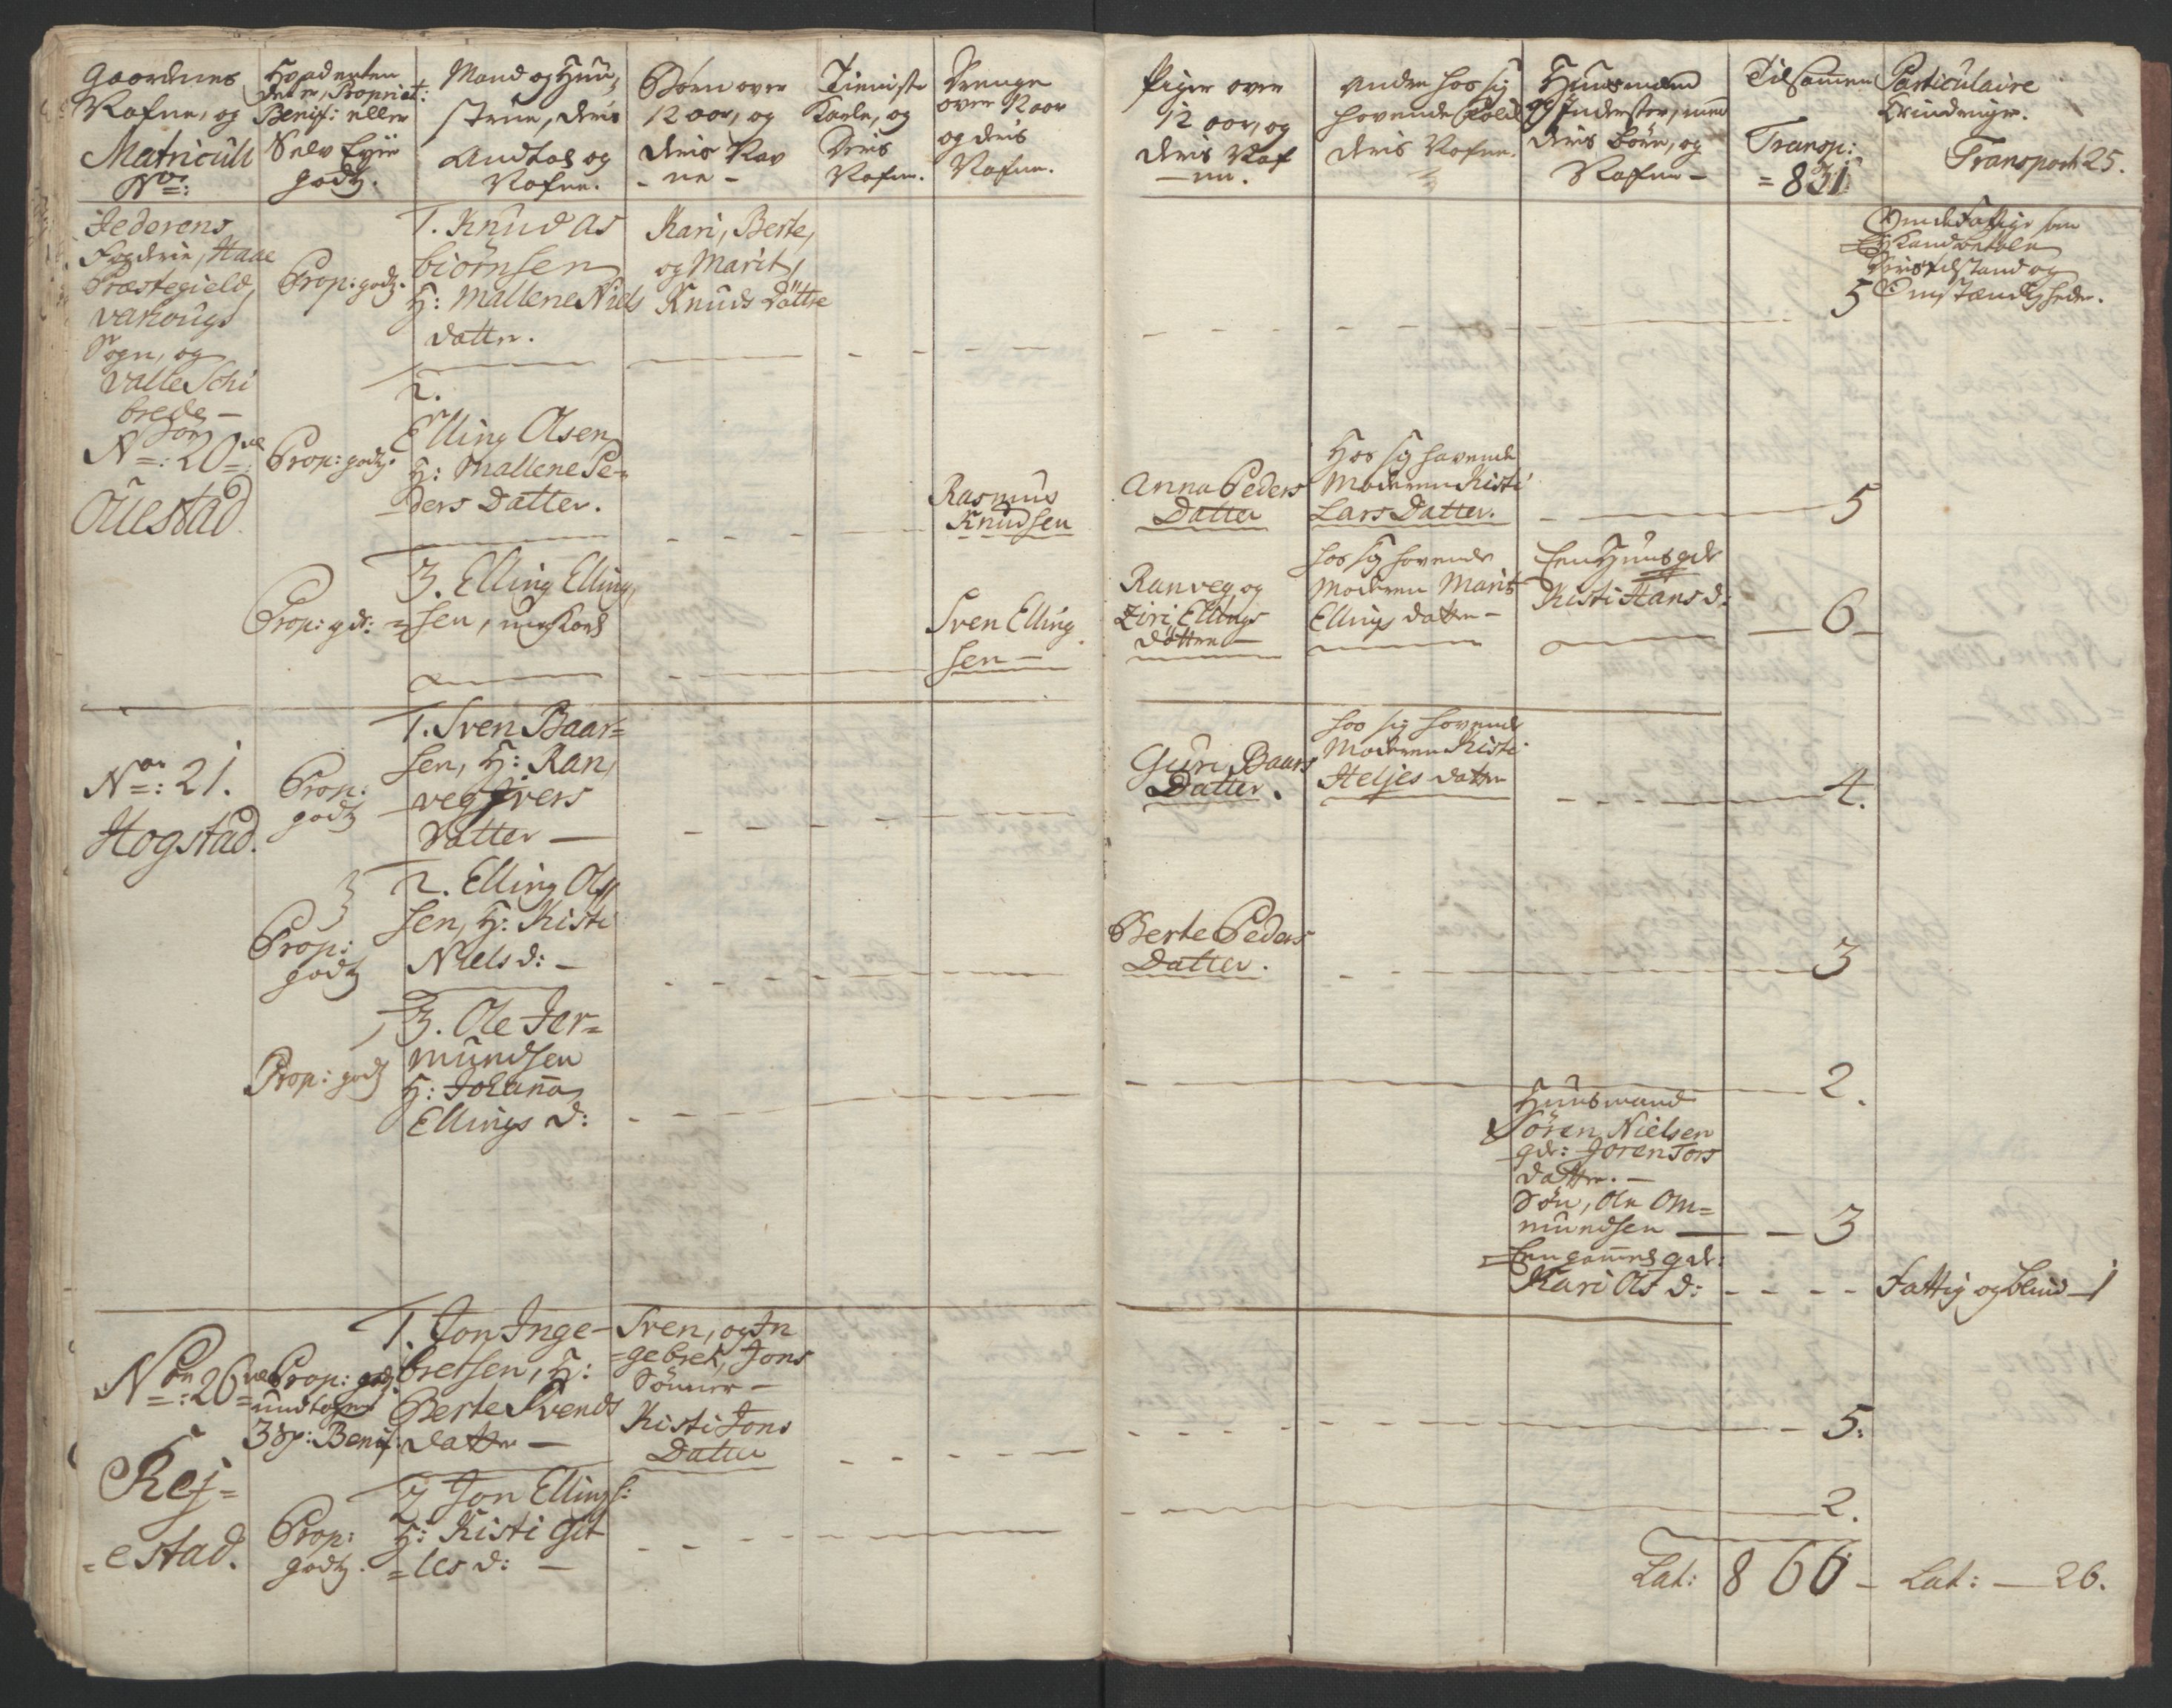 Gaardenes
Nafne, og
Matricull
No:
Hvad enten
det er Propriet:
Benif: eller
Selv Eyer
godtz.
Mand og Huu-
strue, deris
Andtal og
Nafne.
Børn over
12 aar, og
deris Nav
- ne -
Tieniste
Karle, og
Deris
Nafne.
Drenge
over 12 aar
og deris
Nafne.
Piger over
12 aar, og
deris Naf
- ne.
Andre hos sig
havende Folck
deris Nafne.
Huusmænd
og Inderster, med
deris Børn, og
Nafne -
Tilsammen
Transp:
= 831
Particulaire
Erindringer.
Transport 25.
Jederens
Fogderie, Haae
Præstegield,
Varhougs
Sogn, og
Valle Schi
brede -
No: 20
Öüestad
Prop: godtz.
1. Knud As
biörnsen
H: Mallene Niels
datter.
Kari, Berte,
og Marit,
Knuds Döttre
5
som
Ey Kand betale
tilstand og
Omstændigheder.
Prop: godtz.
2.
Elling Olsen
H: Mallene Pe-
ders Datter.
Rasmus
Knudsen
Anna Peders
Datter
Hos sig havende
Moderen Kisti
Lars Datter.
5
Prop: gdz:
3. Elling Elling,
=sen, ungkarl
Sven Elling
sen -
Ranveg, og
Ziri Ellings
döttre -
hos sig havende
Moderen Marit
Ellings datter -
Een Huus
Kisti Hans d:
6 -
No: 21.
Hogstad.
Prop:
godtz
1. Sven Baar=
sen, H: Ran,
veg Ivers
Datter -
Guri Baars
Datter.
hos sig havende
Moderen Kisti
Heljes datter
4.
Prop:
godtz
2. Elling Ol,
sen, H: Kisti
Niels d: -
Berte Peders
Datter.
3
Prop: godtz
3. Ole Jer=
mundsen
H: Johanna
Ellings d:
2.
Huusmand
Sören Nielsen
qde: Joren Tors
datter. -
Søn, Ole Om=
mundsen
3
Een gammel qde:
Kari Ols d:
Fattig og blind - 1
No: 26
Rej=
=estad.
Prop: godtz.
undtagen
3 Benif:
1. Jon Inge-
bretsen, H:
Berte Svends
datter -
Sven, og In
=gebret, Jons
Sønner -
Kisti Jons
Datter
5:
Prop:
godtz.
2 Jon Ellings:
H: Kisti Git
=les d: -
2.
Lat: 866 -
Lat: - 26.